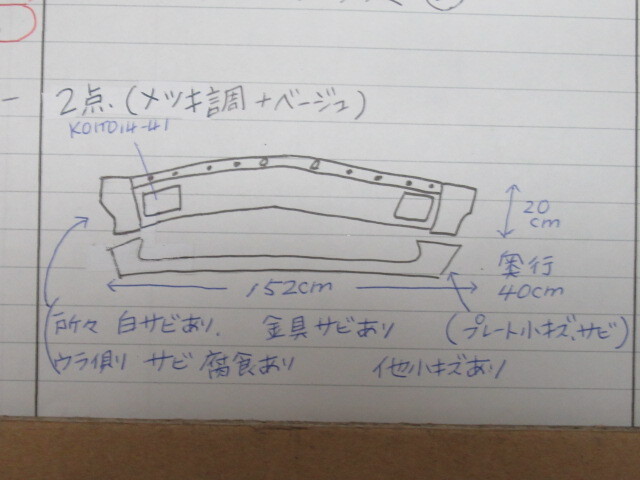 2点.(メツキ調+ベージュ)
KOITO14-41
20
cm
152cm
奥行
40cm
所々 白サビあり. 金具サビあり
(プレート小キズ、サビ)
ウラ側り サビ腐食あり 他小キズあり